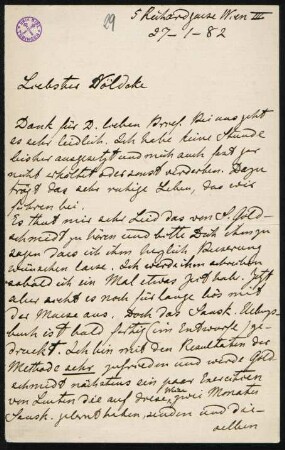 29
5 Reichardgasse Wien III
27-1-82
Liebster Nöldeke
Dank für D. lieben Brief. Bei uns geht
es sehr leidlich. Ich habe keine Stunde
bisher ausgesetzt und mich auch fast gar
nicht erkältet oder sonst verdorben. Dazu
trägt das sehr ruhige Leben, das wir
führen bei.
Es thut mir sehr Leid das von S. Gold-
schmidt zu hören und bitte Dich ihm zu
sagen dass ich ihm herzlich Besserung
wünschen lasse. Ich werde ihm schreiben
sobald ich ein Mal etwas Zeit habe. Jetzt
aber sieht es noch für lange bös mit
der Musse aus. Doch das Sansk. Uebungs-
buch ist bald fertig im Entwurfe /ge-
druckt. Ich bin mit den Resultaten der
Methode sehr zufrieden und werde Gold-
schmidt nächstens ein paar Exercitien
von Leuten die auf diese Weise zwei Monate
Sansk. gelernt haben, senden und die-
selben